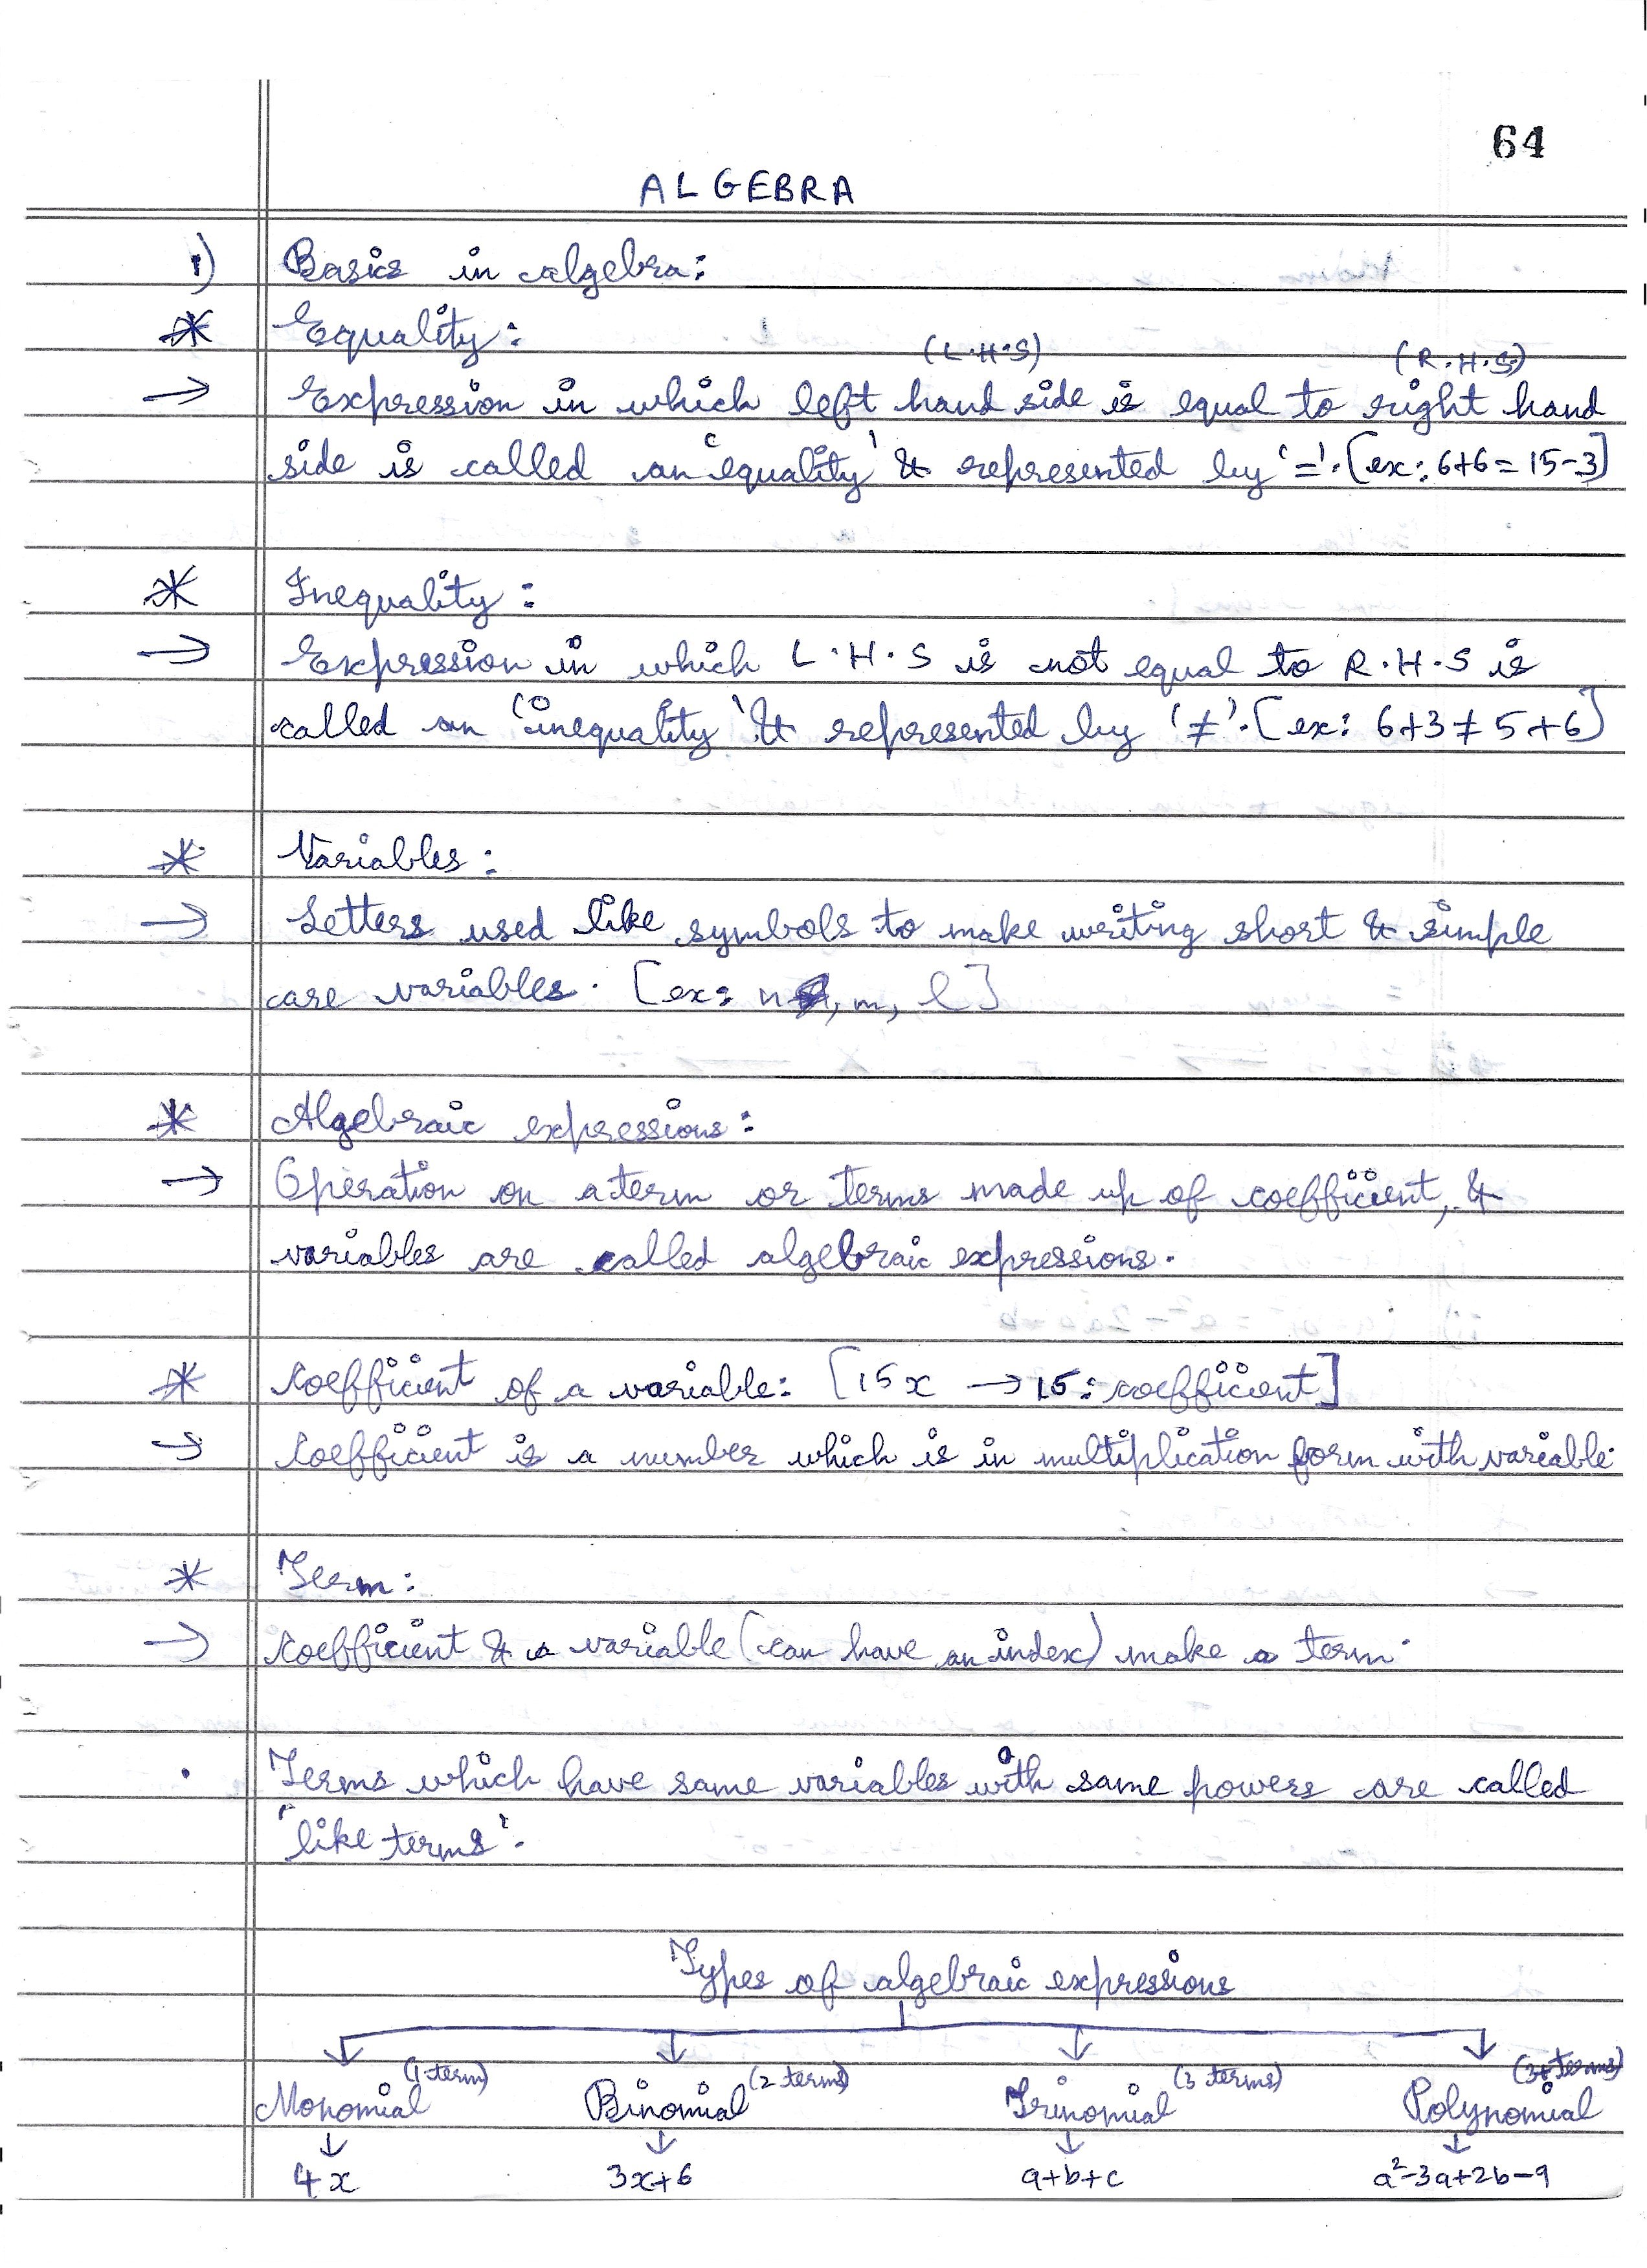 64
ALGEBRA
1) Basics in algebra:
* Equality:
(L.H.S) (R.H.S)
→ Expression in which left hand side is equal to right hand
side is called an 'equality' & represented by '='. [ex: 6+6 = 15-3]
* Inequality:
→ Expression in which L.H.S is not equal to R.H.S is
called an 'inequality' & represented by '≠'. [ex: 6+3 ≠ 5+6]
* Variables:
→ Letters used like symbols to make writing short & simple
are variables. [ex: n, m, l]
* Algebraic expressions:
→ Operation on a term or terms made up of coefficient, &
variables are called algebraic expressions.
* Coefficient of a variable: [15x → 15: coefficient]
→ Coefficient is a number which is in multiplication form with variable.
* Term:
→ Coefficient & a variable (can have an index) make a term.
. Terms which have same variables with same powers are called
'like terms'.
Types of algebraic expressions
Monomial (1 term) Binomial (2 terms) Trinomial (3 terms) Polynomial (3+ terms)
4x 3x+6 a+b+c a²-3a+2b-9